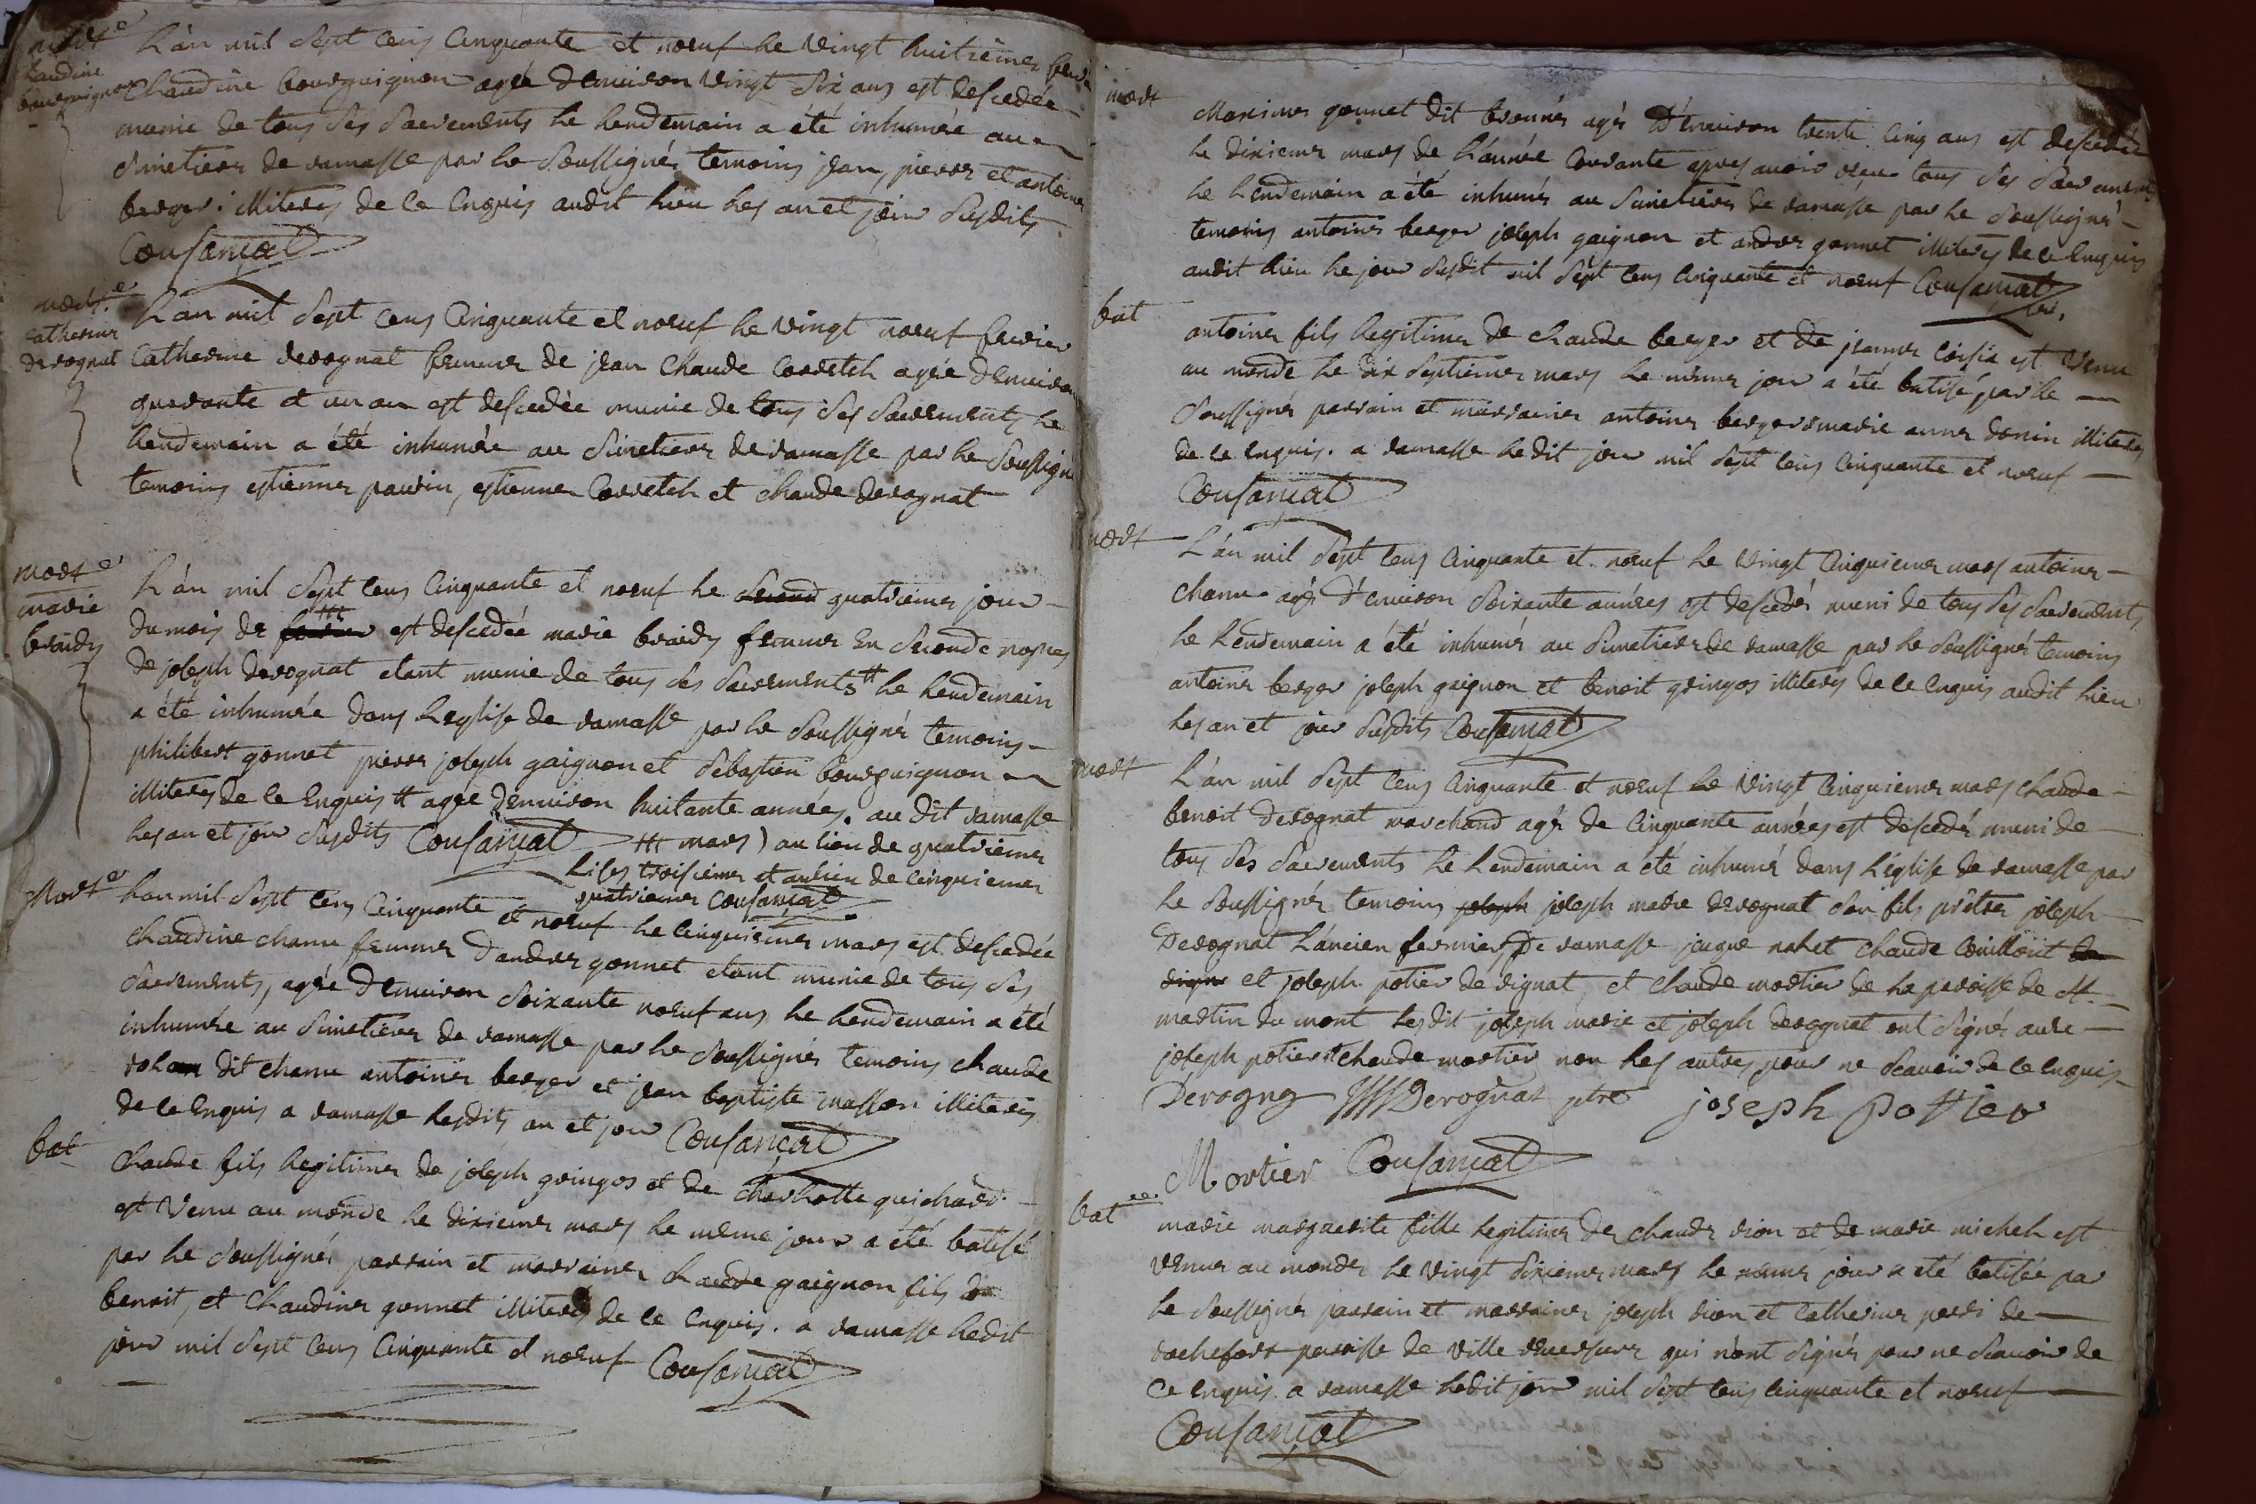 mort e
Claudine
bourguignon
L'an mil sept cens cinquante et noeuf le vingt huitieme
Claudine bourguignon agée d'environ vingt six ans est descedée
munie de tous ses sacrements le lendemain a été inhumée au
simetiere de ramasse par le soussigné temoins jean, pierre et antoine
berger illiteres de ce enquis audit lieu les an et jour susdits
Cousançat
mort e
catherine
derognat
L'an mil sept cens cinquante et noeuf le vingt noeuf fevrier
Catherine derognat femme de jean Claude Corretel agée d'environ
quarante et un an est descedée munie de tous ses sacrements le
lendemain a été inhumée au simetiere de ramasse par le soussigné
temoins estienne pauvin, estienne Corretel et claude derognat
mort e
marie
braidy
L'an mil sept cens cinquante et noeuf le second quatrieme jour
du mois de fevrier ttt est descedée marie braidy femme en seconde nopces
de joseph derognat etant munie de tous ses sacrements tt le lendemain
a été inhumée dans l'eglise de ramasse par le soussigné temoins
philibert gonnet pierre joseph gaignon et sebastien bourguignon
illiteres de ce enquis tt agée d'environ huitante années. au dit ramasse
les an et jour susdits Cousançat ttt mars) au lieu de quatrieme
lises troisieme et au lieu de cinquieme
quatrieme Cousançat
Mort e
L'an mil sept cens cinquante et noeuf le cinquieme mars est descedée
claudine chanu femme d'andre gonnet etant munie de tous ses
sacrements, agée d'environ soixante noeuf ans, le lendemain a été
inhumée au simetiere de ramasse par le soussigné temoins claude
dit chanu antoine berger et jean baptiste masson illiteres
de ce enquis a ramasse lesdits an et jour Cousançat
bat
Claude fils legitime de joseph gringos et de charlotte guichard
est venu au monde le dixieme mars le meme jour a été batisé
par le soussigné parrain et marraine claude gaignon fils de
benoit, et claudine gonnet illiteres de ce enquis. a ramasse ledit
jour mil sept cens cinquante et noeuf Cousançat
mort
Maxime gonnet dit agé d'environ trente cinq ans est descedé
le dixieme mars de l'année courante apres avoir receu tous ses sacrements
le lendemain a été inhumé au simetiere de ramasse par le soussigné
temoins antoine berger joseph gaignon et andre gonnet illiteres de ce enquis
audit lieu le jour susdit mil sept cens cinquante et noeuf Cousançat
curé.
bat
antoine fils legitime de claude berger et de jeanne est venu
au monde le dix septieme mars le meme jour a été batisé par le
soussigné parrain et marraine antoine berger marie anne donin illiteres
de ce enquis. a ramasse ledit jour mil sept cens cinquante et noeuf
Cousançat
mort
L'an mil sept cens cinquante et noeuf le vingt cinquieme mars antoine
chanu agé d'environ soixante années est descedé muni de tous ses sacrements
le lendemain a été inhumé au simetiere de ramasse par le soussigné temoins
antoine berger joseph gaignon et benoit gringos illiteres de ce enquis audit lieu
les an et jour susdits Cousançat
mort
L'an mil sept cens cinquante et noeuf le vingt cinquieme mars claude
benoit derognat marchand agé de cinquante années est descedé muni de
tous ses sacrements le lendemain a été inhumé dans l'église de ramasse par
le soussigné temoins joseph joseph marie derognat son fils prêtre joseph
Derognat l'ancien fermier de ramasse claude
et joseph potier de rignat, et claude mortier de la paroisse de st
martin du mont lesdit joseph marie et joseph derognat ont signé avec
joseph potier et claude mortier non les autres pour ne scavoir de ce enquis
Derogng JM Derognat ptre joseph pottier
Mortier Cousançat
bat ee.
marie marguerite fille legitime de claude rion et de marie michel est
venue au monde le vingt sixieme mars le meme jour a été batisée par
le soussigné parrain et marraine joseph rion et catherine perdi de
rochefort paroisse de ville reversure qui n'ont signé pour ne scavoir de
ce enquis. a ramasse ledit jour mil sept cens cinquante et noeuf
Cousançat